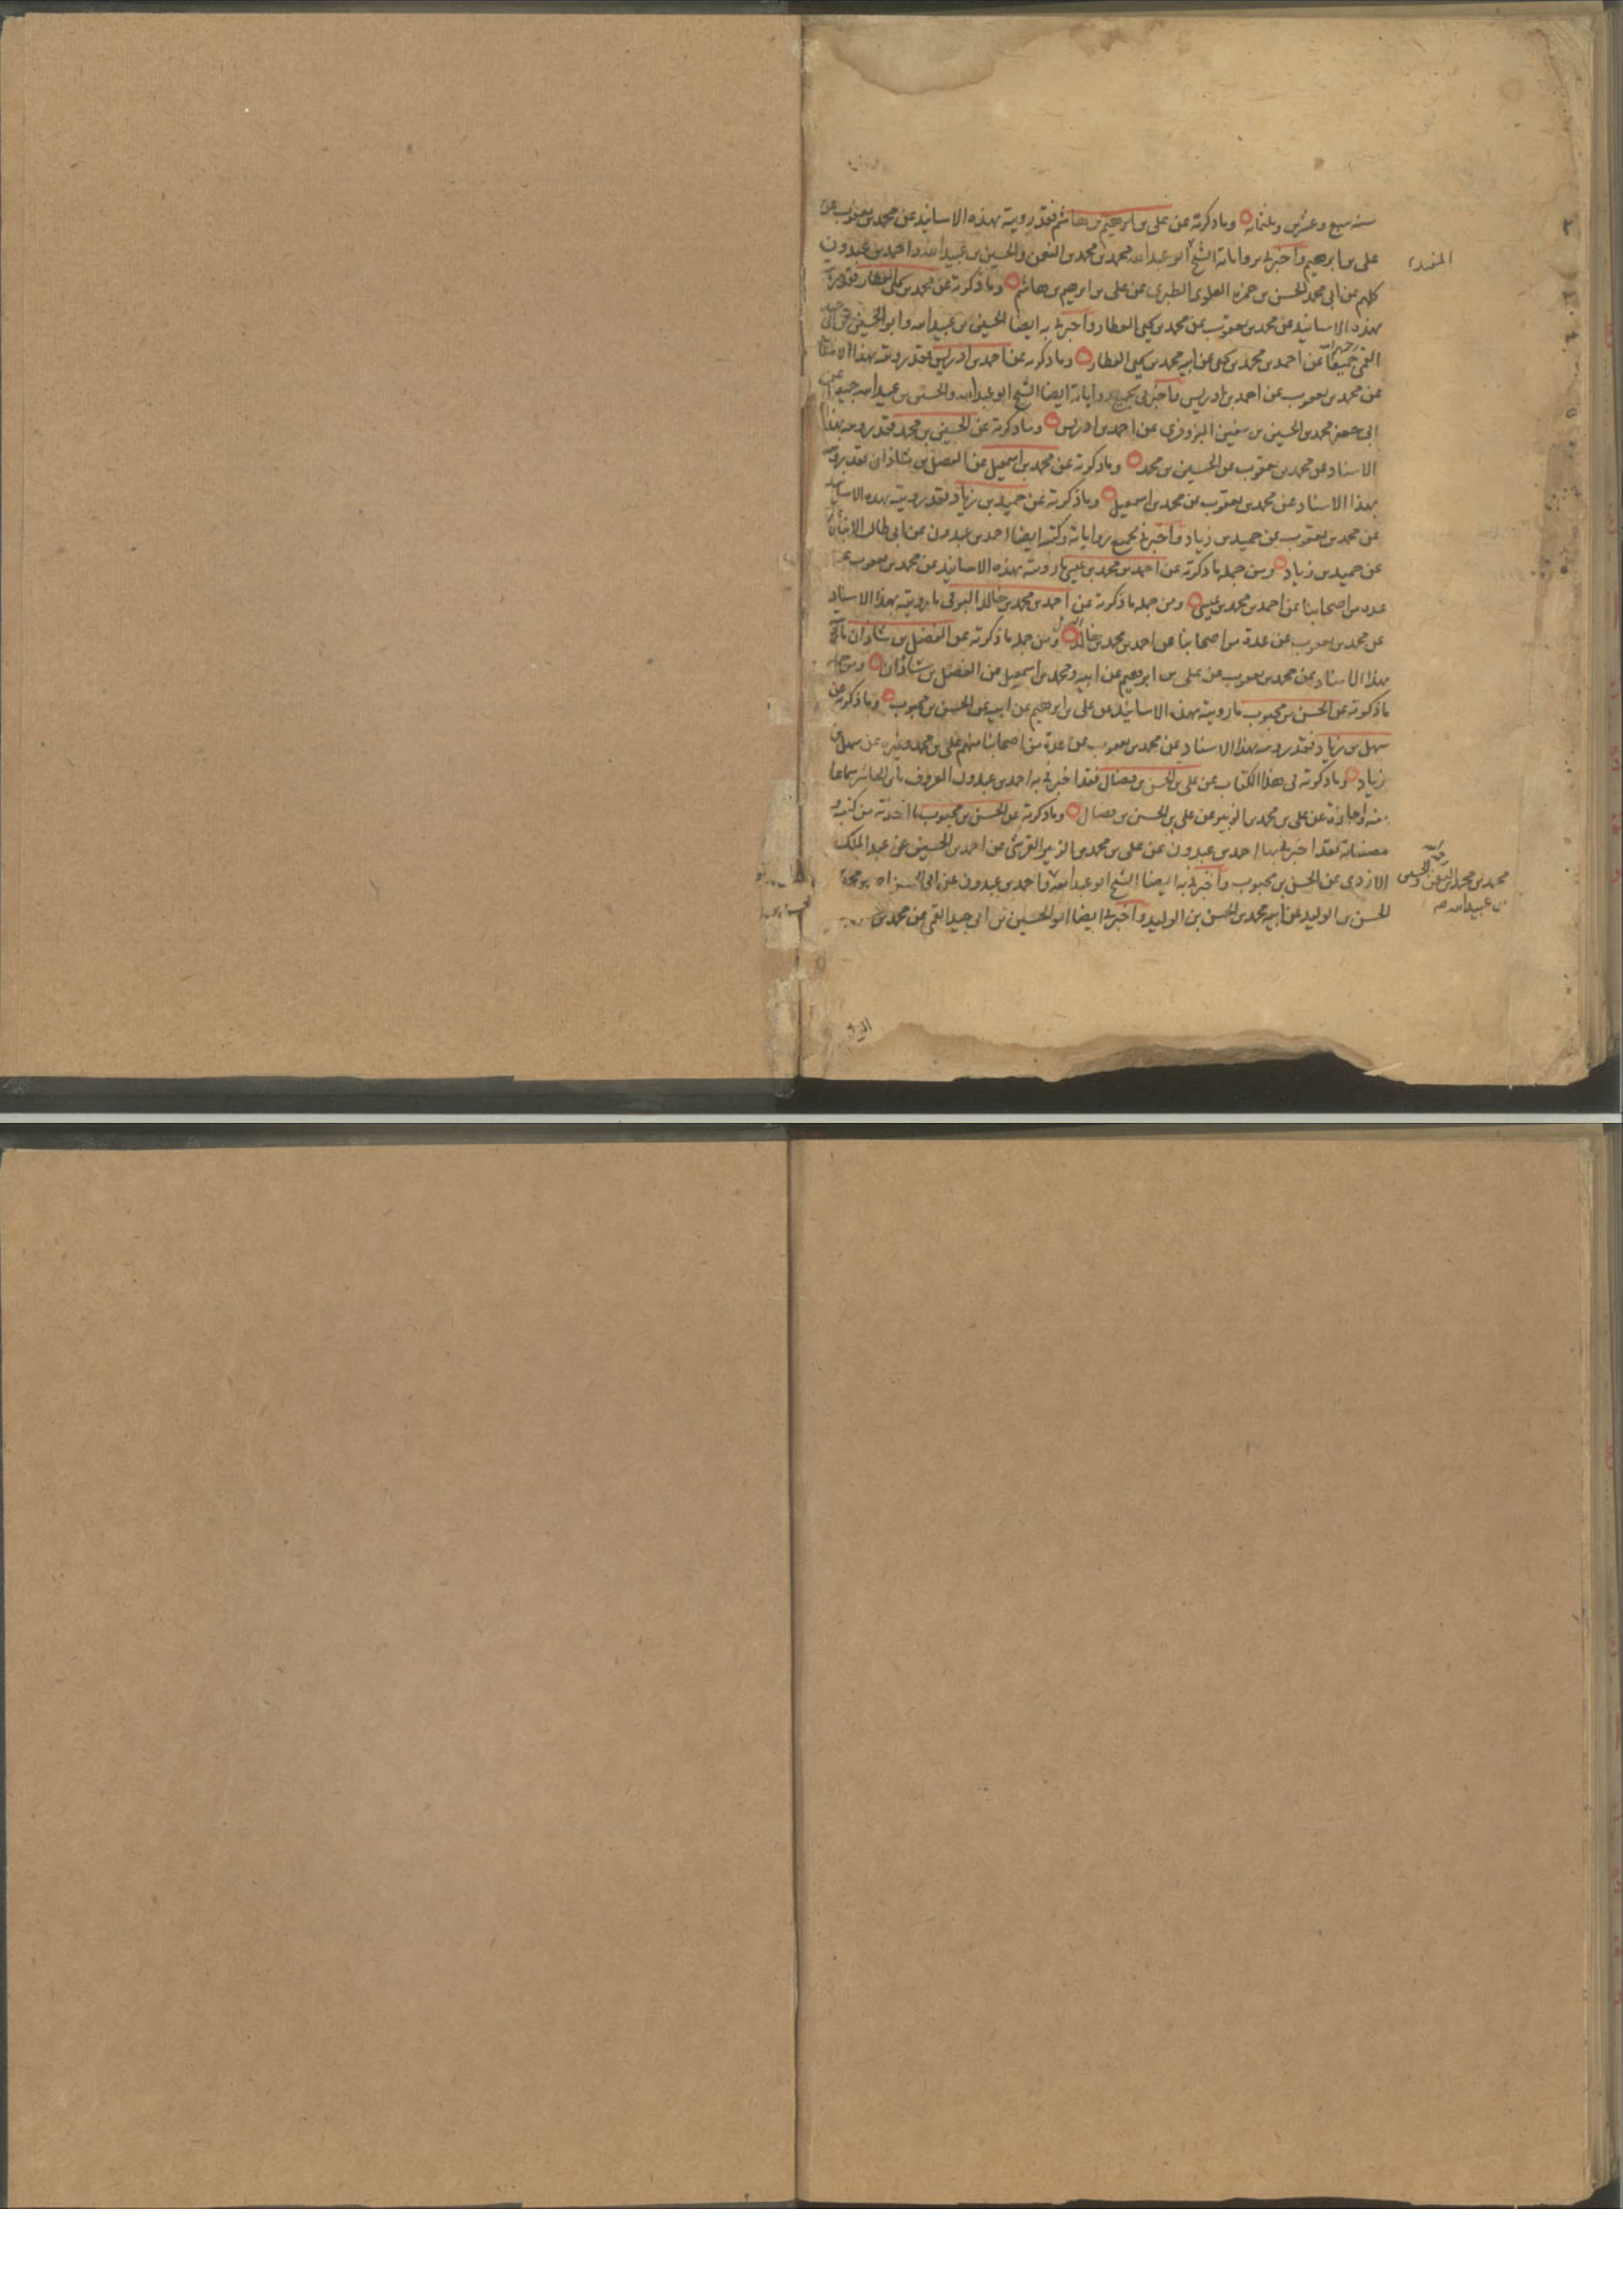 سنه سبع وعشرين وثلثمائه وما ذكرته عن على بن ابرهيم بن هاشم فقد رويته بهذه الاسانيد عن محمد بن يعقوب عن
على بن ابرهيم واخبرنى برواياته الشيخ ابو عبد الله محمد بن محمد بن النعمن والحسين بن عبيد الله واحمد بن عبدون
المفيد
كلهم عن ابى محمد الحسن بن حمزه العلوى الطبرى عن على بن ابرهيم بن هاشم وما ذكرته عن محمد بن يحيى العطار فقد
بهذه الاسانيد عن محمد بن يعقوب عن محمد بن يحيى العطار واخبرنى به ايضا الحسين بن عبيد الله وابو الحسين بن ابى جيد
القمى جميعا عن احمد بن محمد بن يحيى عن ابيه محمد بن يحيى العطار وما ذكرته عن احمد بن ادريس فقد رويته بهذا الاسناد
عن محمد بن يعقوب عن احمد بن ادريس واخبرنى بجميع رواياته ايضا الشيخ ابو عبد الله والحسين بن عبيد الله جميعا عن
ابى جعفر محمد بن الحسين بن سفين البزوفرى عن احمد بن ادريس وما ذكرته عن الحسين بن محمد فقد رويته بهذا
الاسناد عن محمد بن يعقوب عن الحسين بن محمد وما ذكرته عن محمد بن اسمعيل عن الفضل بن شاذان فقد رويته
بهذا الاسناد عن محمد بن يعقوب عن محمد بن اسمعيل وما ذكرته عن حميد بن زياد فقد رويته بهذه الاسانيد
عن محمد بن يعقوب عن حميد بن زياد واخبرنى بجميع رواياته وكتبه ايضا احمد بن عبدون عن ابى طالب الانبارى
عن حميد بن زياد ومن جمله ما ذكرته عن احمد بن محمد بن عيسى ما رويته بهذه الاسانيد عن محمد بن يعقوب عن
عده من اصحابنا عن احمد بن محمد بن عيسى ومن جمله ما ذكرته عن احمد بن محمد بن خالد البرقى ما رويته بهذا الاسناد
عن محمد بن يعقوب عن عدة من اصحابنا عن احمد بن محمد بن خالد ومن جمله ما ذكرته عن الفضل بن شاذان
بهذا الاسناد عن محمد بن يعقوب عن على بن ابرهيم عن ابيه ومحمد بن اسمعيل عن الفضل بن شاذان ومن جمله
ما ذكرته عن الحسن بن محبوب ما رويته بهذه الاسانيد عن على بن ابرهيم عن ابيه عن الحسن بن محبوب وما ذكرته عن
سهل بن زياد فقد رويته بهذا الاسناد عن محمد بن يعقوب عن عدة من اصحابنا منهم على بن محمد وغيره عن سهل بن
زياد وما ذكرته فى هذا الكتاب عن على بن الحسن بن فضال فقد اخبرنى به احمد بن عبدون المعروف بابن الحاشر سماعا
منه واجازة عن على بن محمد بن الزبير عن على بن الحسن بن فضال وما ذكرته عن الحسن بن محبوب ما اخذته من كتبه و
مصنفاته فقد اخبرنى بها احمد بن عبدون عن على بن محمد بن الزبير القرشى عن احمد بن الحسين بن عبد الملك
الازدى عن الحسن بن محبوب واخبرنى به ايضا الشيخ ابو عبد الله واحمد بن عبدون عن ابى الحسن
محمد بن محمد بن النعمن والحسين
بن عبيد الله
الحسن بن الوليد عن ابيه محمد بن الحسن بن الوليد واخبرنى ايضا ابو الحسين بن ابى جيد القمى عن محمد بن